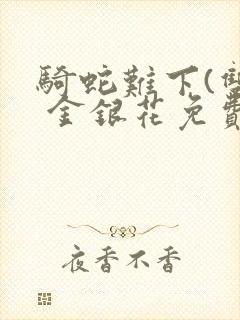 騎蛇難下(雙
金銀花免費
夜香不香